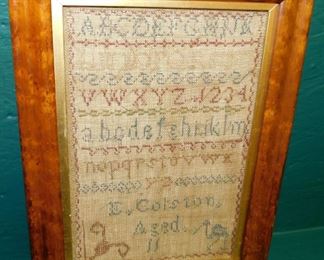 ABCDEFGHIJK
VWXYZ 1234
abcdefghiklm
nopqrstuvwx
yz
E, Colston,
Aged
11